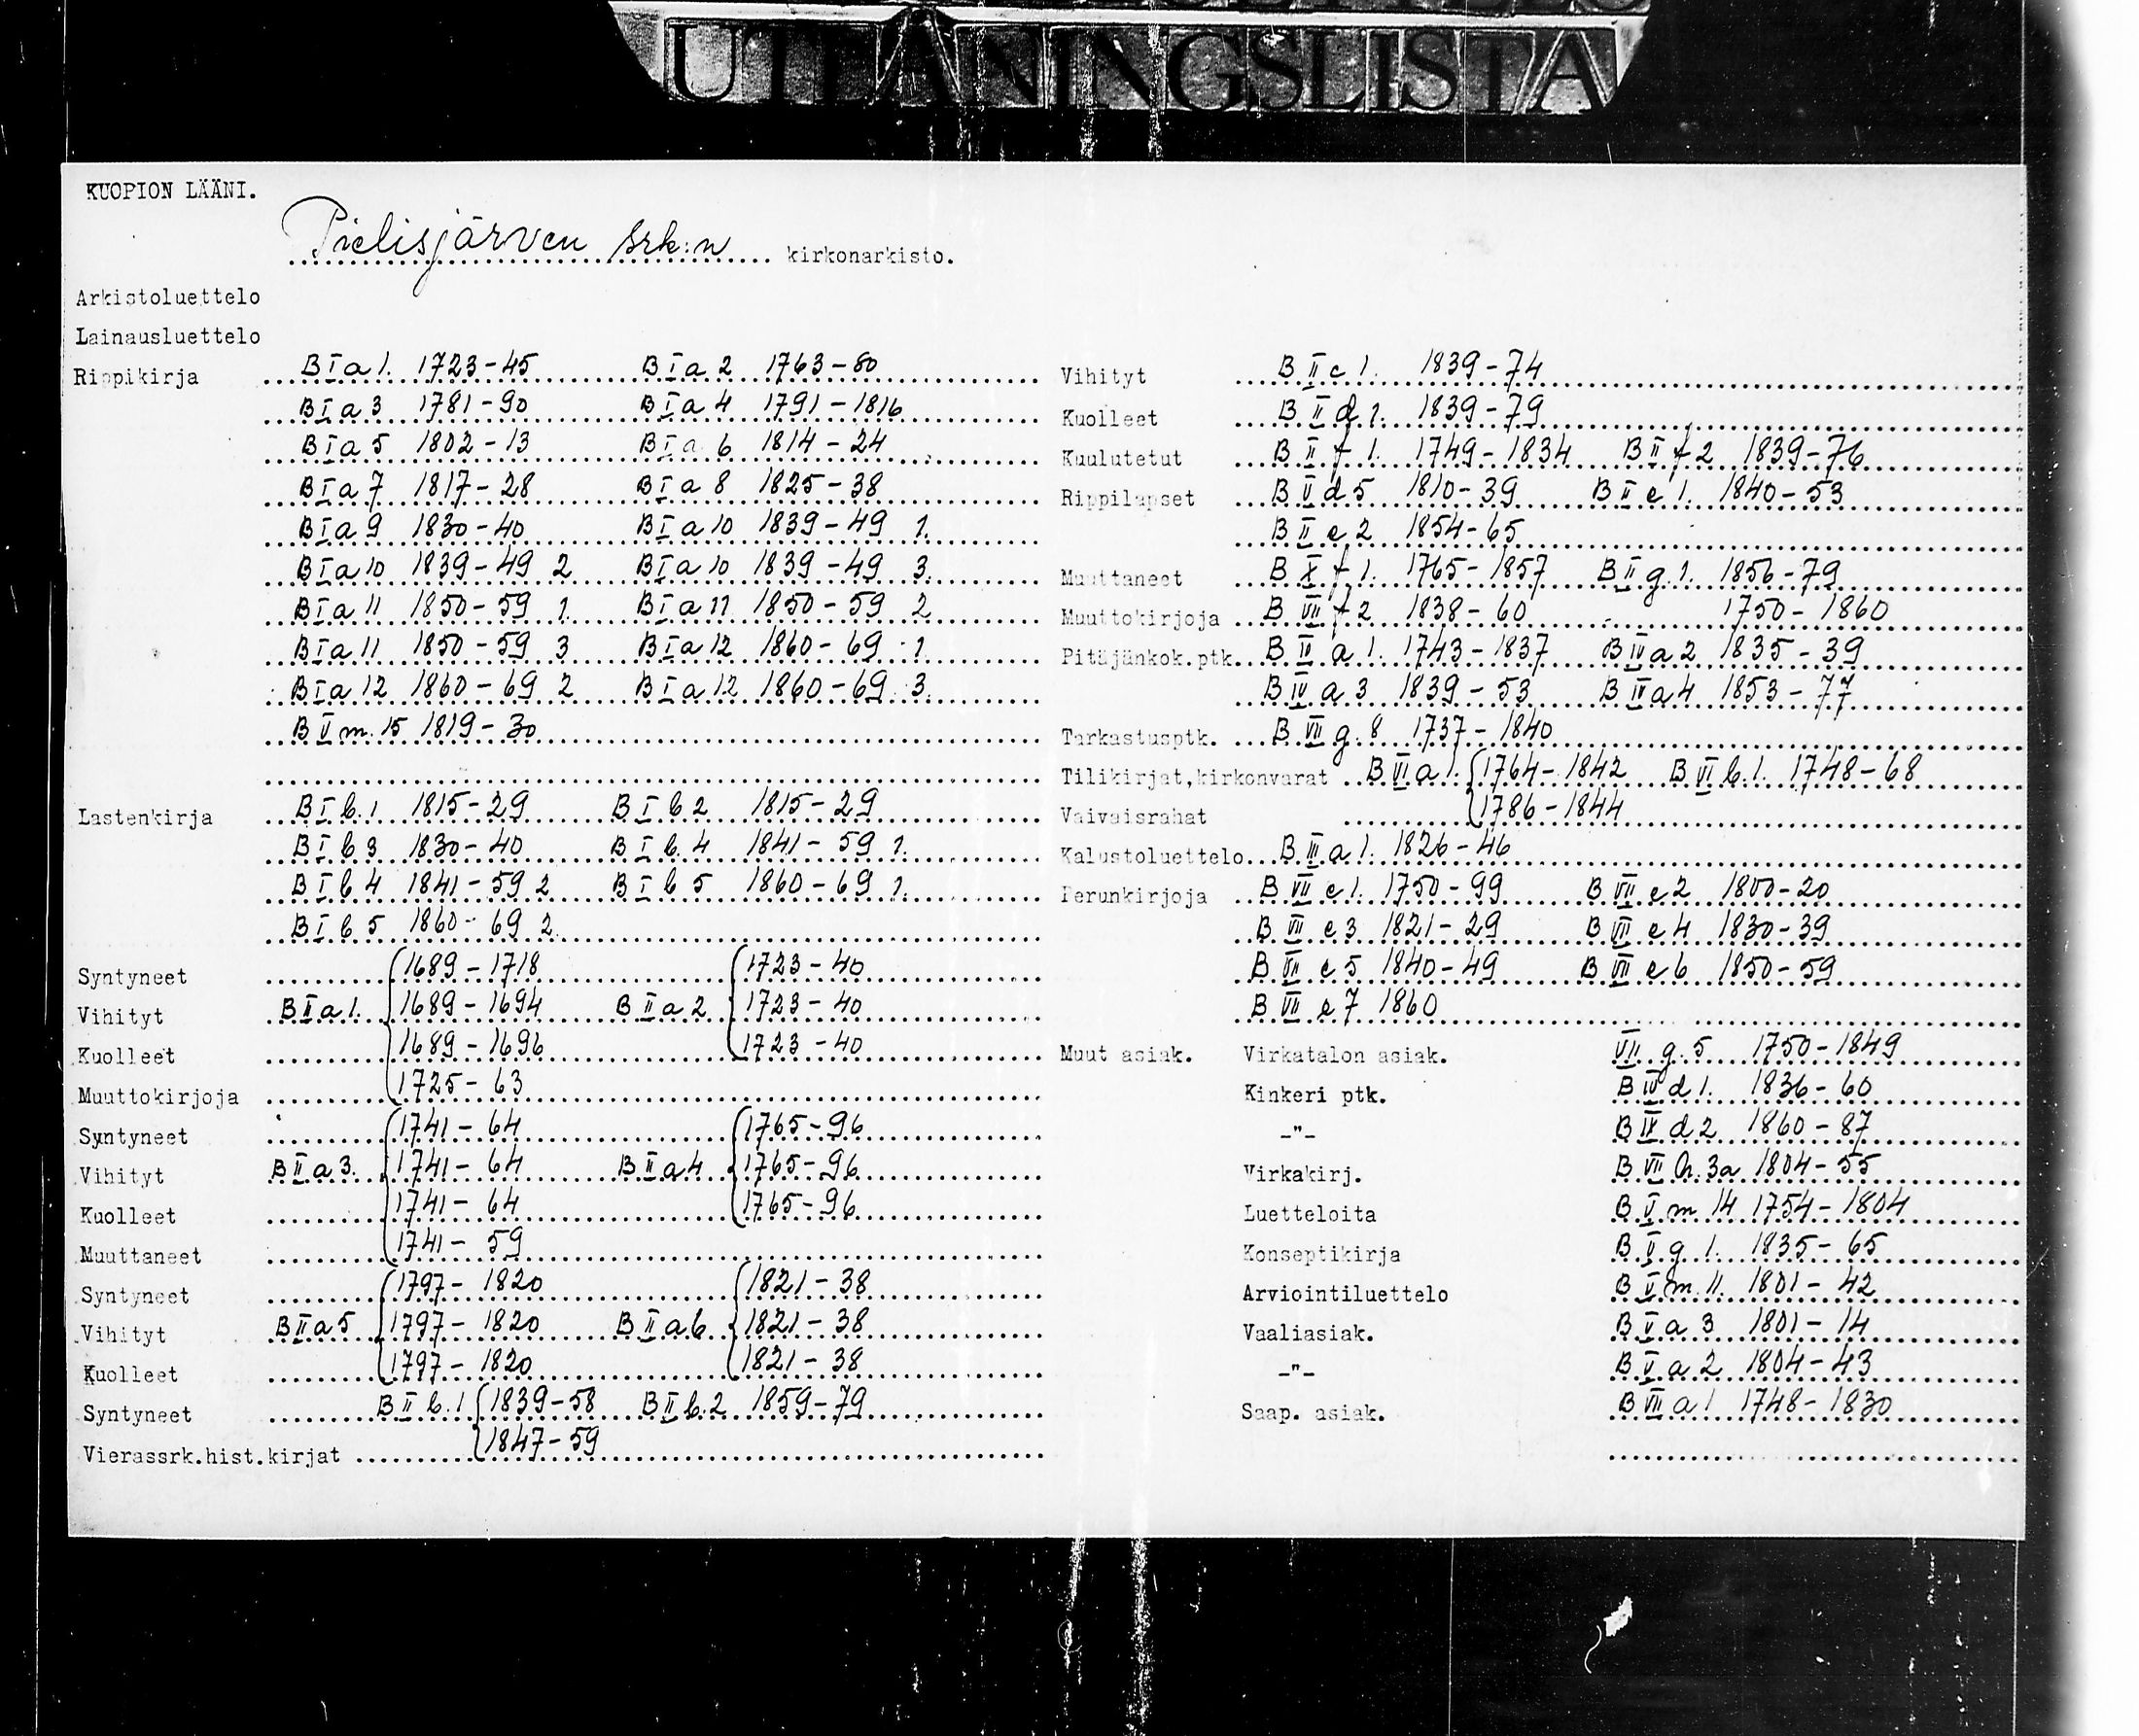 UTLÅNINGSLISTA
KUOPION LÄÄNI.
Pielisjärven srk:n kirkonarkisto.
Arkistoluettelo
Lainausluettelo
Rippikirja B I a 1. 1723-45 B I a 2 1763-80
B I a 3 1781-90 B I a 4 1791-1816
B I a 5 1802-13 B I a 6 1814-24
B I a 7 1817-28 B I a 8 1825-38
B I a 9 1830-40 B I a 10 1839-49 1.
B I a 10 1839-49 2 B I a 10 1839-49 3.
B I a 11 1850-59 1. B I a 11 1850-59 2
B I a 11 1850-59 3 B I a 12 1860-69 1
B I a 12 1860-69 2 B I a 12 1860-69 3.
B V m. 15 1819-30
Lastenkirja B I b. 1 1815-29 B I b 2 1815-29
B I b 3 1830-40 B I b. 4 1841-59 1.
B I b 4 1841-59 2 B I b 5 1860-69 1.
B I b 5 1860-69 2.
Syntyneet 1689-1718 1723-40
Vihityt B II a 1. 1689-1694 B II a 2 1723-40
Kuolleet 1689-1696 1723-40
Muuttokirjoja 1725-63
Syntyneet 1741-64 1765-96
Vihityt B II a 3. 1741-64 B II a 4 1765-96
Kuolleet 1741-64 1765-96
Muuttaneet 1741-59
Syntyneet 1797-1820 1821-38
Vihityt B II a 5 1797-1820 B II a 6 1821-38
Kuolleet 1797-1820 1821-38
Syntyneet B II b. 1 1839-58 B II b. 2 1859-79
Vierassrk.hist.kirjat 1847-59
Vihityt B II c 1. 1839-74
Kuolleet B II d 1. 1839-79
Kuulutetut B II f 1. 1749-1834 B II f 2 1839-76
Rippilapset B V d 5 1810-39 B II e 1. 1840-53
B II e 2 1854-65
Muuttaneet B X f 1. 1765-1857 B II g. 1. 1856-79
Muuttokirjoja B VII f 2 1838-60 1750-1860
Pitäjänkok.ptk. B IV a 1. 1743-1837 B IV a 2 1835-39
B IV a 3 1839-53 B IV a 4 1853-77
Tarkastusptk. B VII g. 8 1737-1840
Tilikirjat,kirkonvarat B VI a 1. 1764-1842 B VI b. 1. 1748-68
Vaivaisrahat 1786-1844
Kalustoluettelo B III a 1. 1826-46
Perunkirjoja B VII e 1. 1750-99 B VII e 2 1800-20
B VII e 3 1821-29 B VII e 4 1830-39
B VII e 5 1840-49 B VII e 6 1850-59
B VII e 7 1860
Muut asiak. Virkatalon asiak. VII. g. 5 1750-1849
Kinkeri ptk. B IV d 1. 1836-60
-"- B IV d 2 1860-87
Virkakirj. B VII h. 3a 1804-55
Luetteloita B V m 14 1754-1804
Konseptikirja B V g 1. 1835-65
Arviointiluettelo B V m. 11. 1801-42
Vaaliasiak. B V a 3 1801-14
-"- B V a 2 1804-43
Saap. asiak. B VII a 1 1748-1830